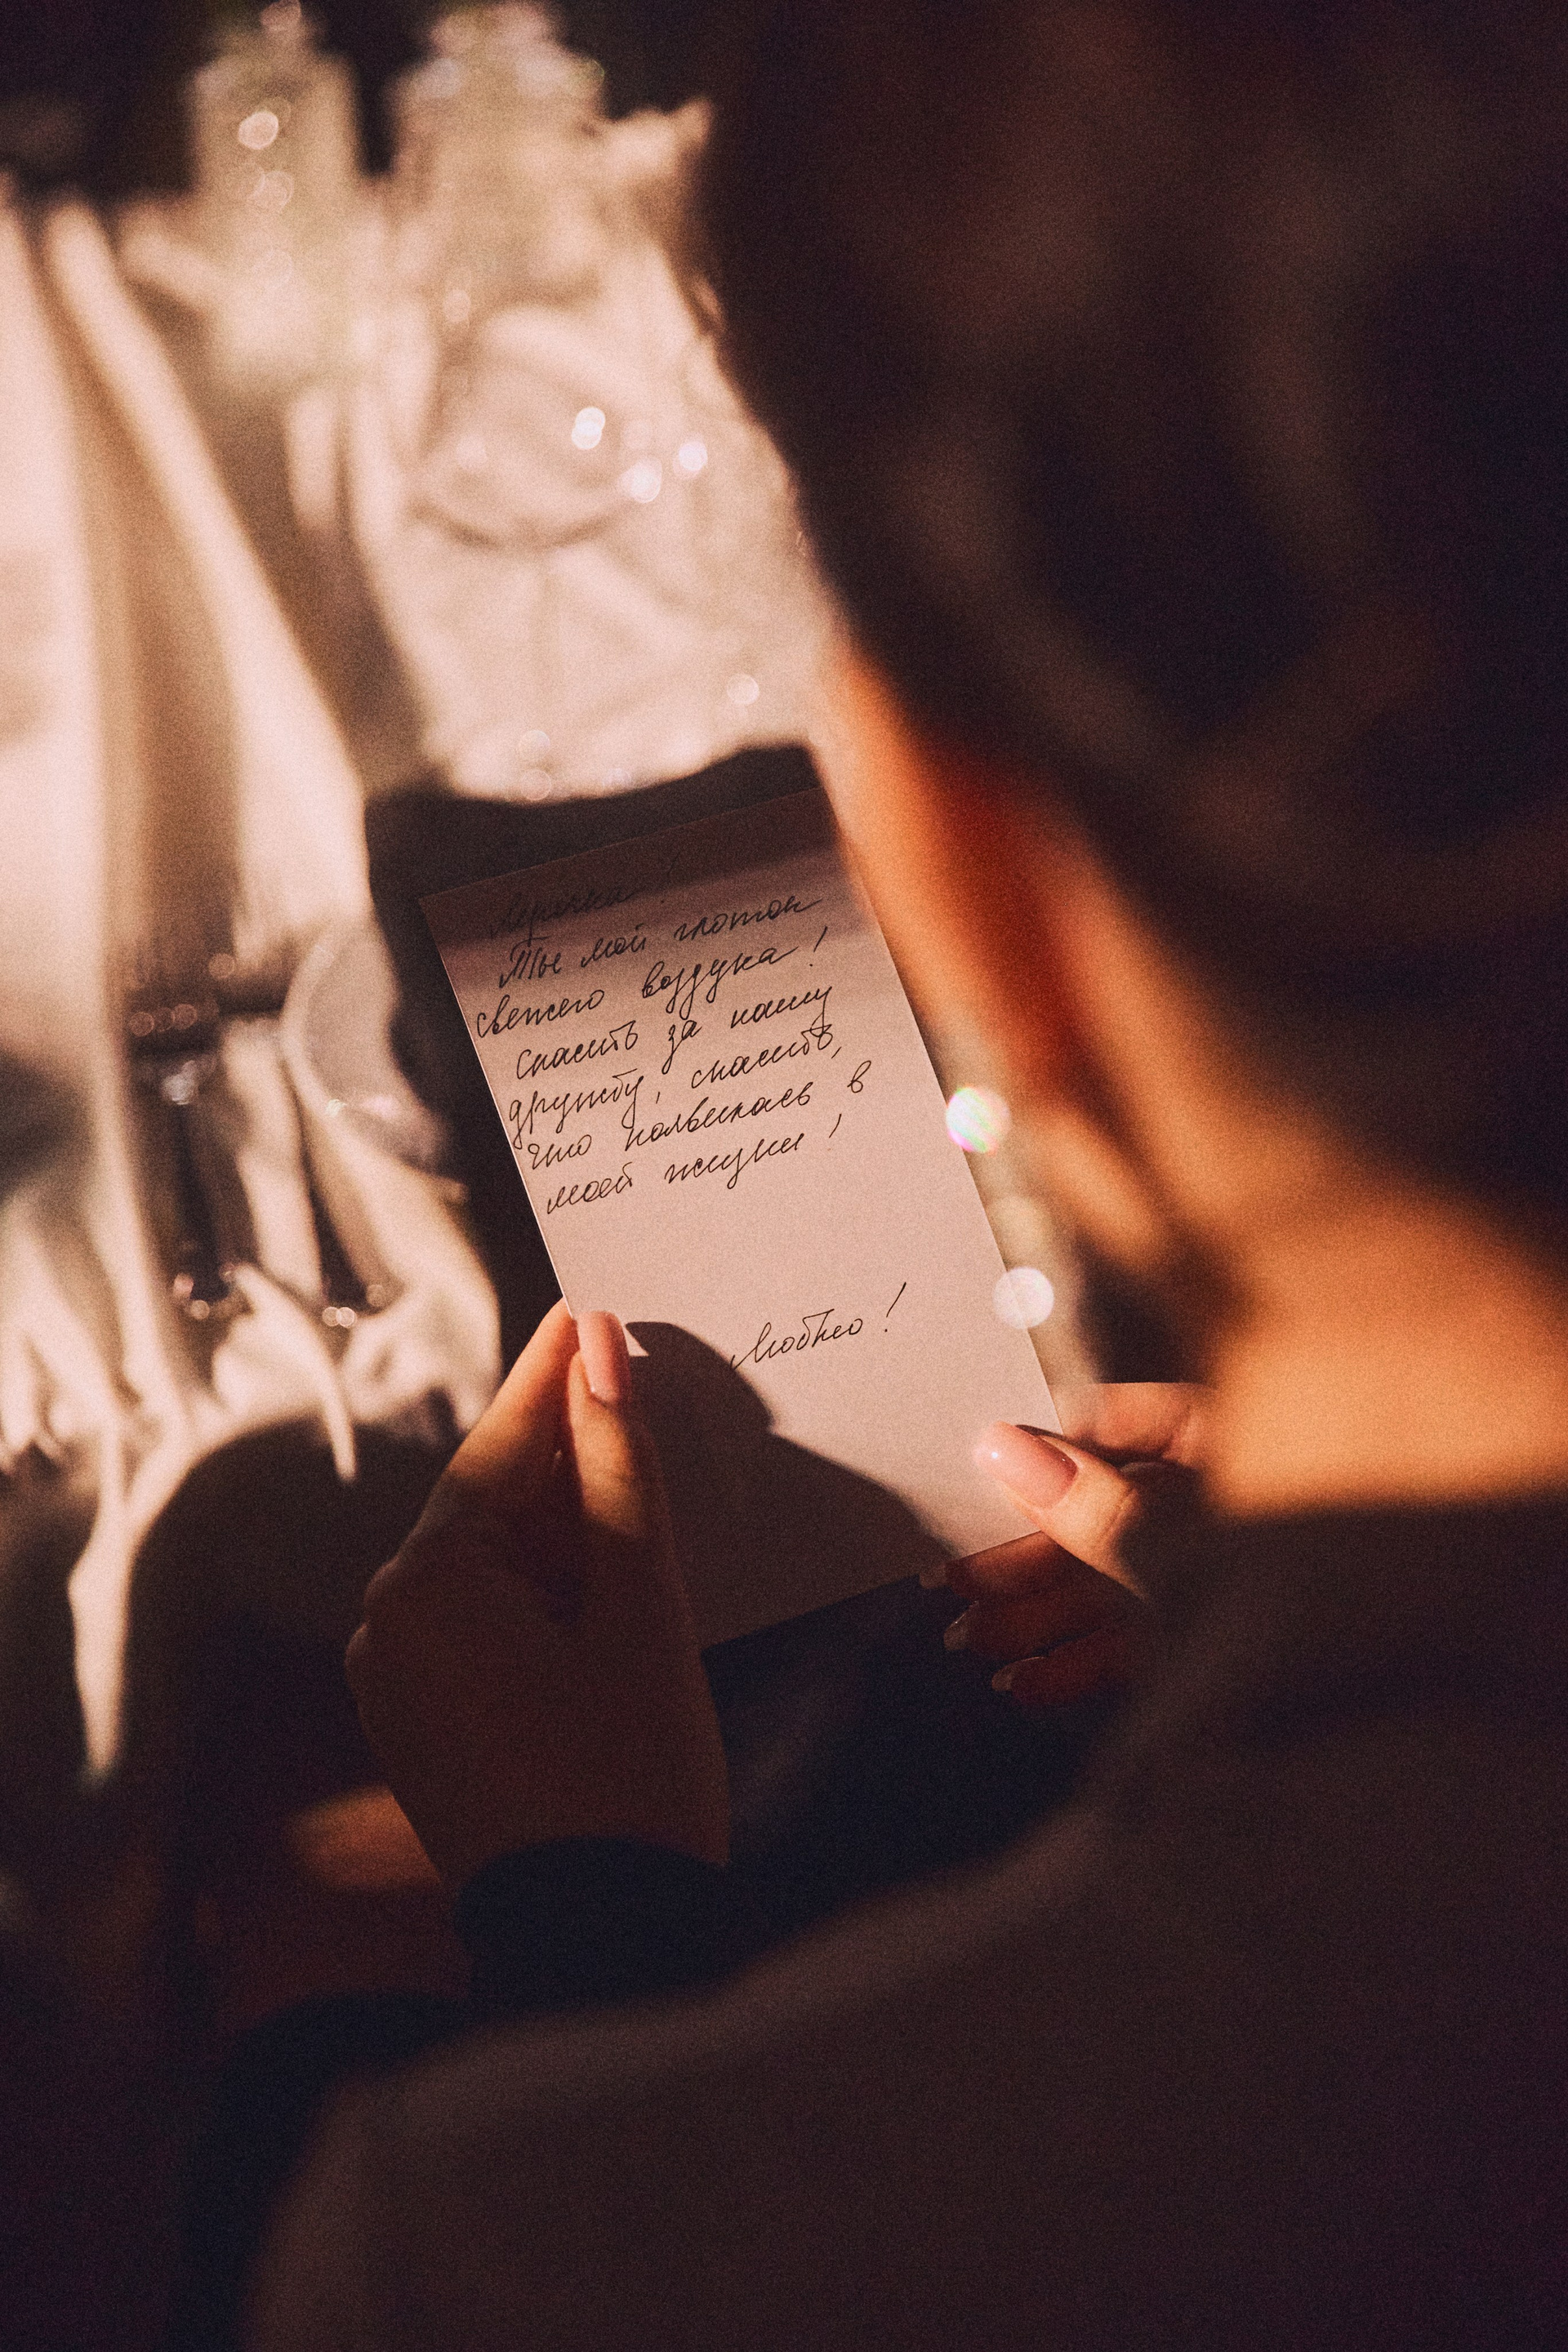 Лерочка!
Ты мой глоток
свежего воздуха!
Спасибъ за нашу
дружбу, спасибъ,
что появилась в
моей жизни!
Люблю!